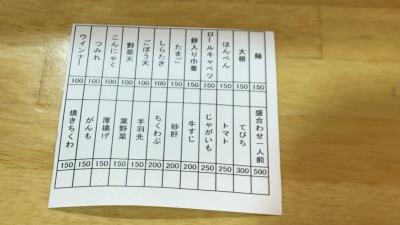 麺 150
大根 150
はんぺん 150
ロールキャベツ 150
餅入り巾着 150
たまご 150
しらたき 100
ごぼう天 100
野菜天 100
こんにゃく 100
つみれ 100
ウインナー 100
盛合わせ一人前 500
てびち 300
トマト 250
じゃがいも 250
牛すじ 200
砂肝 200
ちくわぶ 200
手羽先 150
葉野菜 150
厚揚げ 150
がんも 150
焼きちくわ 150